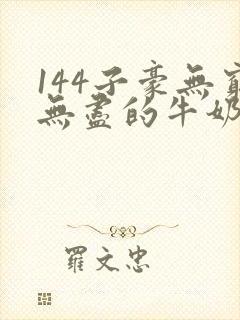 144子豪無窮
無盡的牛奶
羅文忠